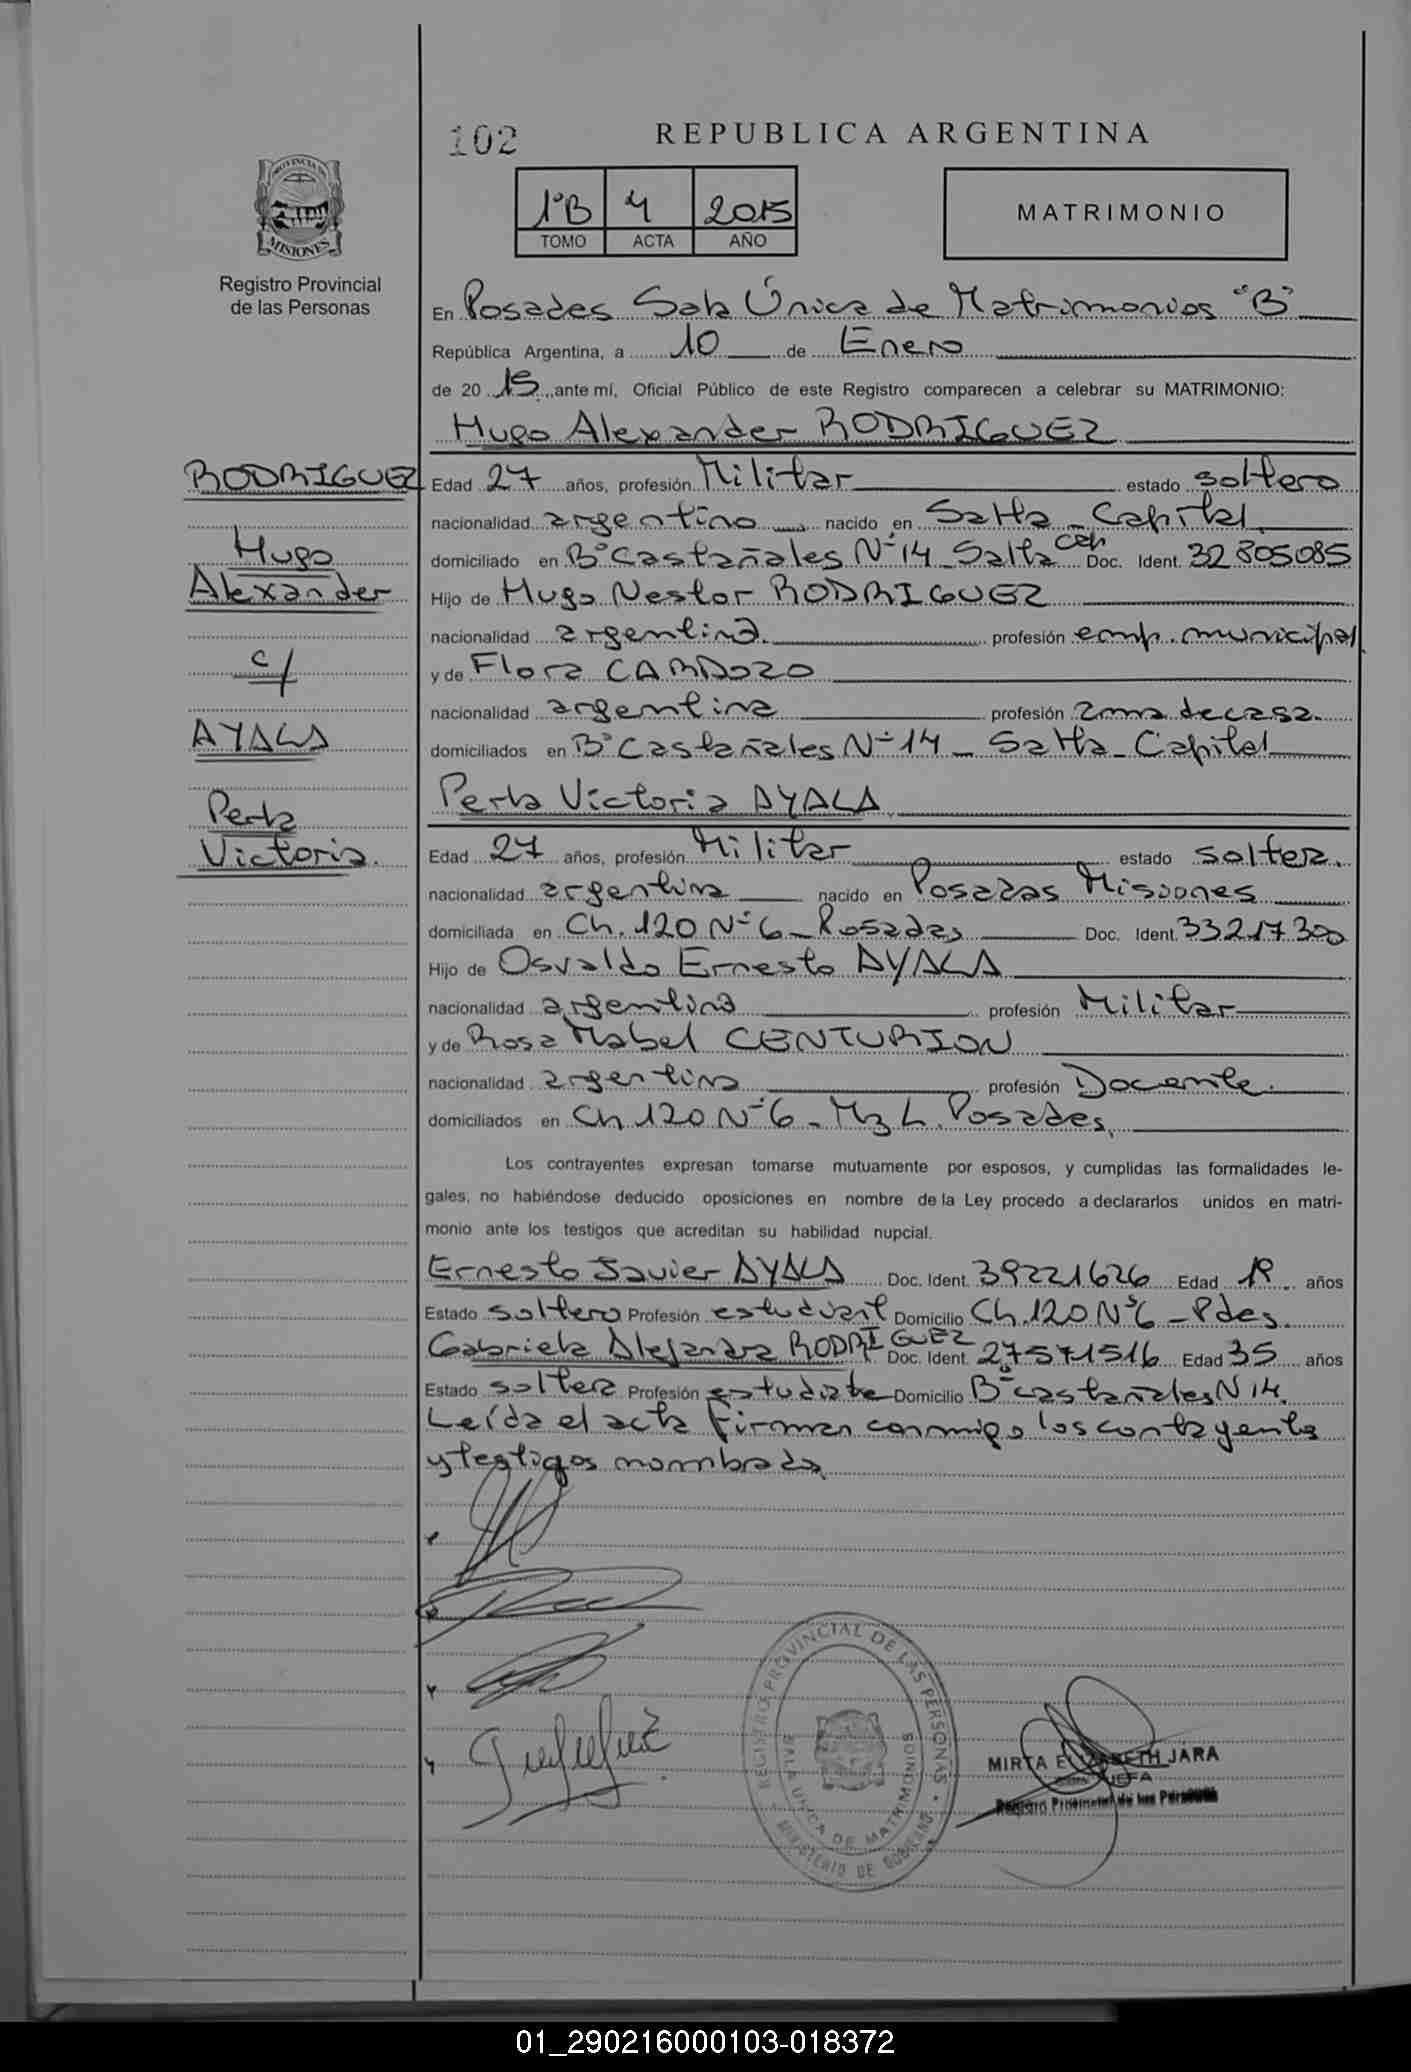 102
REPUBLICA ARGENTINA
1°B 4 2015
TOMO ACTA AÑO
MATRIMONIO
PROVINCIA DE
MISIONES
Registro Provincial
de las Personas
En Posadas Sala Única de Matrimonios "B"
República Argentina, a 10 de Enero
de 20 15 ante mí, Oficial Público de este Registro comparecen a celebrar su MATRIMONIO:
Hugo Alexander RODRIGUEZ
RODRIGUEZ
Hugo
Alexander
c/
AYALA
Perla
Victoria.
Edad 27 años, profesión Militar estado soltero
nacionalidad argentino nacido en Salta - Capital
domiciliado en B° Castañales N° 14 - Salta Cap Doc. Ident. 32805085
Hijo de Hugo Nestor RODRIGUEZ
nacionalidad argentina. profesión emp. municipal
y de Flora CARDOZO
nacionalidad argentina profesión ama de casa.
domiciliados en B° Castañales N° 14 - Salta - Capital
Perla Victoria AYALA
Edad 27 años, profesión Militar estado soltera.
nacionalidad argentina nacido en Posadas Misiones
domiciliada en Ch. 120 N° 6 - Posadas Doc. Ident. 33217300
Hijo de Osvaldo Ernesto AYALA
nacionalidad argentina profesión Militar
y de Rosa Mabel CENTURION
nacionalidad argentina profesión Docente.
domiciliados en Ch. 120 N° 6 - Mz L. Posadas,
Los contrayentes expresan tomarse mutuamente por esposos, y cumplidas las formalidades le-
gales, no habiéndose deducido oposiciones en nombre de la Ley procedo a declararlos unidos en matri-
monio ante los testigos que acreditan su habilidad nupcial.
Ernesto Javier AYALA Doc. Ident. 39221626 Edad 19 años
Estado soltero Profesión estudiant Domicilio Ch. 120 N° 6 - Pdas.
Gabriela Alejandra RODRIGUEZ Doc. Ident. 27571516 Edad 35 años
Estado soltera Profesión estudiate Domicilio B° Castañales N 14.
Leída el acta firman conmigo los contrayentes
y testigos nombrados
REGISTRO PROVINCIAL DE LAS PERSONAS
SALA UNICA DE MATRIMONIOS
MINISTERIO DE GOBIERNO
MIRTA ELIZABETH JARA
JEFA
Registro Provincial de las Personas
01_290216000103-018372